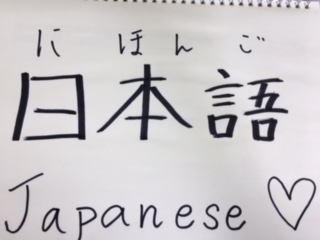 に ほん ご
日本語
Japanese ♡